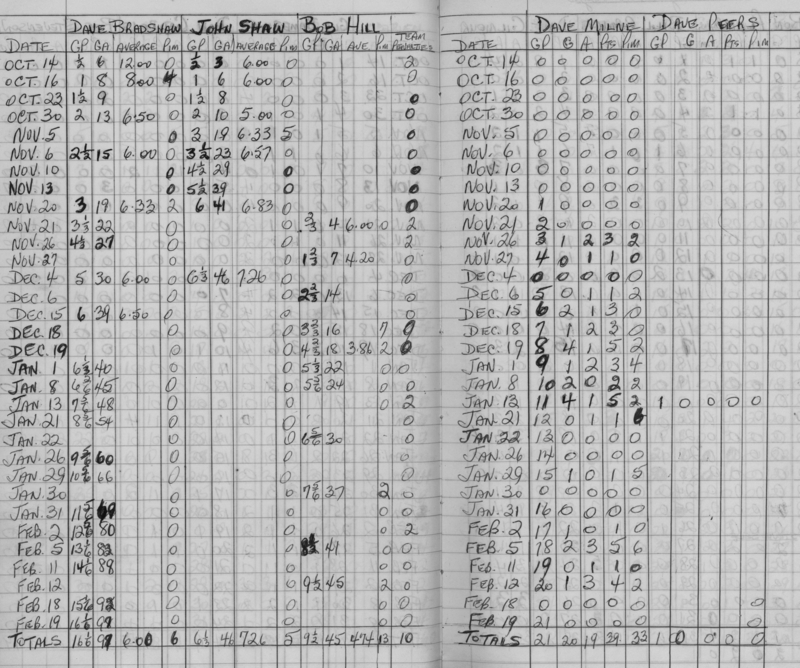 DAVE BRADSHAW JOHN SHAW BOB HILL
DATE GP GA AVERAGE PIM GP GA AVERAGE PIM GP GA AVE PIM TEAM PENALTIES
OCT 14 6 12.00 0 1/2 3 6.00 0 2
OCT 16 1 8 8.00 4 1 6 6.00 0 0
OCT. 23 1 1/2 9 1 1/2 8 0 0
OCT. 30 2 13 6.50 0 2 10 5.00 0 0
NOV. 5 0 3 19 6.33 5 0
NOV. 6 2 1/2 15 6.00 0 3 1/2 23 6.57 0 0
NOV. 10 0 4 1/2 29 0 0
NOV. 13 0 5 1/2 39 0 0
NOV. 20 3 19 6.33 2 6 41 6.83 0 0
NOV. 21 3 1/3 22 0 2/3 4 6.00 0 2
NOV. 26 4 1/3 27 0 2
NOV. 27 0 1 2/3 7 4.20 0
DEC. 4 5 30 6.00 0 6 1/3 46 726 0 0
DEC. 6 0 2 2/3 14 0
DEC. 15 6 39 6.50 0 0
DEC. 18 0 3 2/3 16 7 0
DEC. 19 0 4 2/3 18 3.86 2 0
JAN. 1 6 1/3 40 0 5 1/3 22 0 0
JAN. 8 45 0 5 5/6 24 0 0
JAN 13 48 0 0 2
JAN. 21 54 0 0 0
JAN. 22 0 6 5/6 30 0
JAN. 26 60 0 0
JAN. 29 66 0 0
JAN. 30 0 7 5/6 37 2 0
JAN. 31 0 0
FEB. 2 80 0 0 2
FEB. 5 0 41 0 0
FEB. 11 0 0 0
FEB. 12 0 9 1/2 45 2 0
FEB. 18 0 0 0
FEB. 19 0 0
TOTALS 6.00 6 6 1/3 46 726 5 9 1/2 45 474 13 10
DAVE MILNE DAVE PEERS
DATE GP G A Pts PIM GP G A Pts PIM
OCT 14 0 0 0 0 0
OCT 16 0 0 0 0 0
OCT. 23 0 0 0 0 0
OCT. 30 0 0 0 0 0
NOV. 5 0 0 0 0 0
NOV. 6 0 0 0 0 0
NOV. 10 0 0 0 0 0
NOV. 13 0 0 0 0 0
NOV. 20 1 0 0 0 0
NOV. 21 2 0 0 0 0
NOV. 26 3 1 2 3 2
NOV. 27 4 0 1 1 0
DEC. 4 0 0 0 0 0
DEC. 6 5 0 1 1 2
DEC. 15 6 2 1 3 0
DEC. 18 7 1 2 3 0
DEC. 19 8 4 1 5 2
JAN. 1 9 1 2 3 4
JAN. 8 10 2 0 2 2
JAN 13 11 4 1 5 2 1 0 0 0 0
JAN. 21 12 0 1 1 6
JAN 22 13 0 0 0 0
JAN. 26 14 0 0 0 0
JAN. 29 15 1 0 1 5
JAN. 30 0 0 0 0 0
JAN. 31 16 0 0 0 0
FEB. 2 17 1 0 1 0
FEB. 5 18 2 3 5 6
FEB. 11 19 0 1 1 0
FEB. 12 20 1 3 4 2
FEB. 18 0 0 0 0 0 0
FEB. 19 21 0 0 0 0 0
TOTALS 21 20 19 39 33 1 0 0 0 0